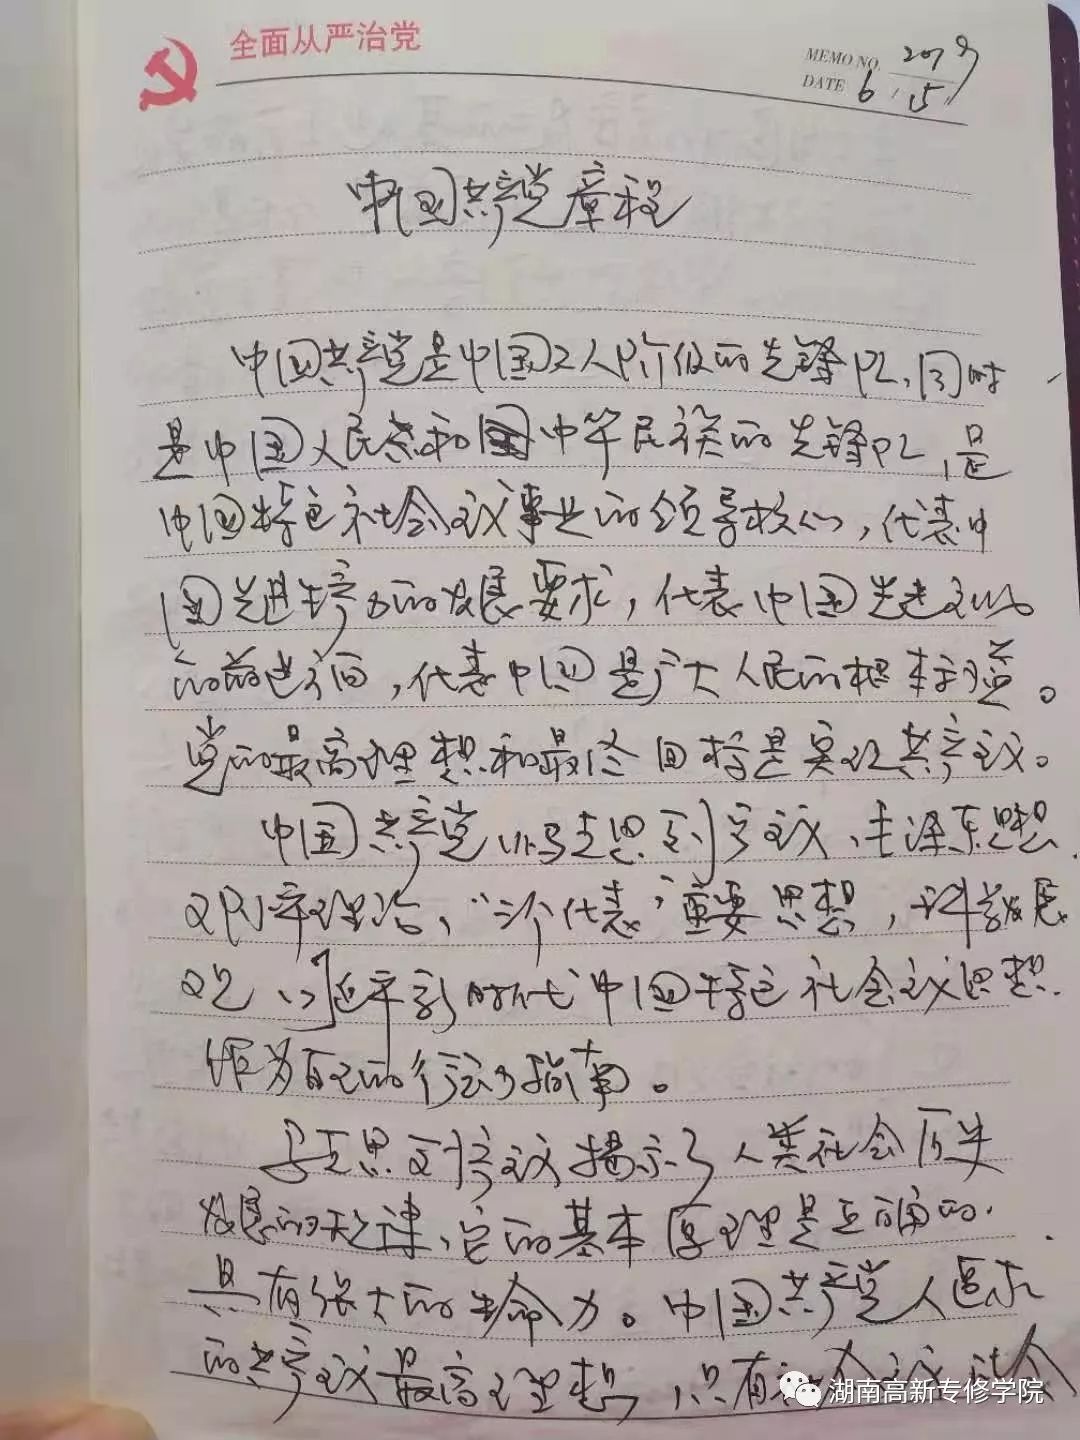 全面从严治党
MEMO NO. 2019
DATE 6 / 15
中国共产党章程
中国共产党是中国工人阶级的先锋队,同时
是中国人民和中华民族的先锋队,是
中国特色社会主义事业的领导核心,代表中
国先进生产力的发展要求,代表中国先进文化
的前进方向,代表中国最广大人民的根本利益。
党的最高理想和最终目标是实现共产主义。
中国共产党以马克思列宁主义、毛泽东思想、
邓小平理论,“三个代表”重要思想,科学发展
观、习近平新时代中国特色社会主义思想
作为自己的行动指南。
马克思列宁主义揭示了人类社会历史
发展的规律,它的基本原理是正确的.
具有强大的生命力。中国共产党人追求
的共产主义最高理想,只有社会主义社会
湖南高新专修学院